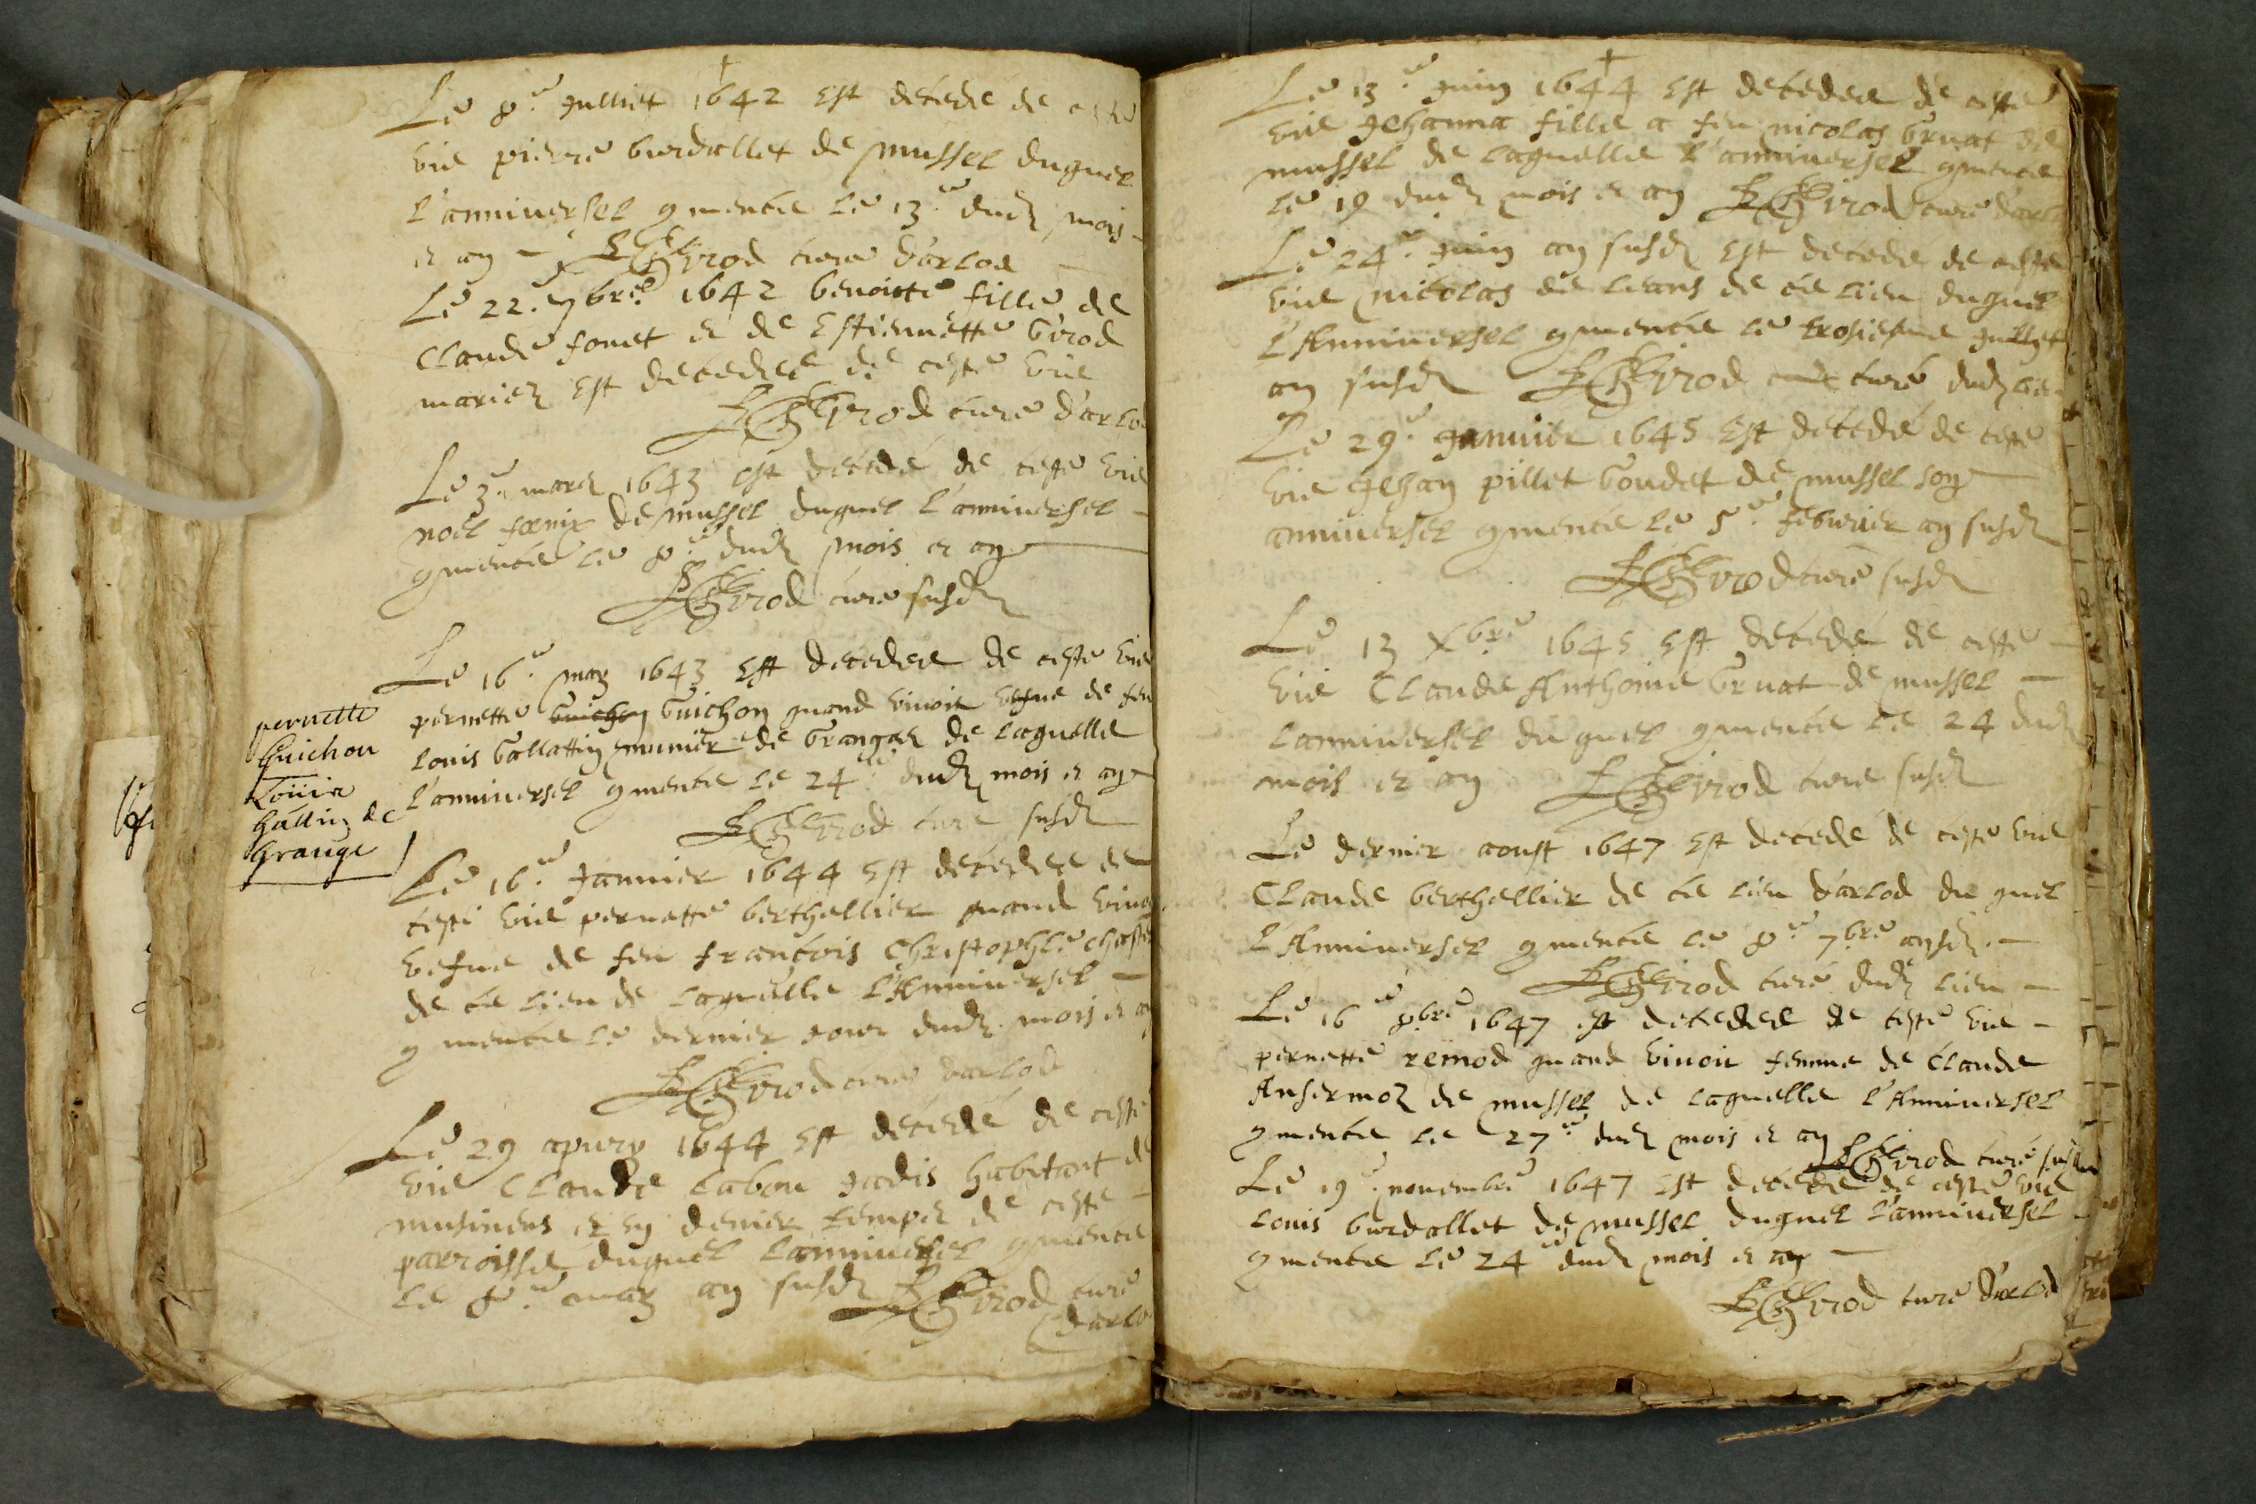 Le 8e Julliet 1642 est decede de ceste
vie pierre burdallet de mussel duquel
l'anniversel 9mence le 13e dud mois
et an Girod cure d'arlod
Le 22e 9bre 1642 benoitte fille de
Claude fouet et de Estiennette Girod
mariez est decedee de ceste vie
Girod cure d'arlo
Le 3e mars 1643 est decedé de ceste vie
noel fœnix de mussel duquel l'anniversel
9mence le 8e dud mois et an
Girod cure susd
Le 16e may 1643 est decedee de ceste vie
pernette Guichon Guichon quand vivoit vefve de feu
Louis Gallattin munier de Granges de laquelle
l'anniversel 9mence le 24e dud mois et an
Girod cure susd
pernette
Guichon
Louis
Gallin de
Grange
Le 16e Janvier 1644 est decedee de
ceste vie pernette berthellier quand vivoi
vefve de feu francois Christophle
de ce lieu de laquelle l'Anniversel
9mence le dernier jour dud mois et an
Girod cure darlod
Le 29 apvry 1644 est decedé de ceste
vie Claude Labou jadis habitant de
musinens et en denier temps de ceste
parroisse duquel l'anniversel 9mence
le 8e may an susd Girod cure
darlo
Le 13e Juing 1644 est decedee de ceste
vie Jehanna fille a feu nicolas Gruat de
mussel de laquelle l'anniversel 9mence
le 19 dud mois et an Girod cure d'arlo
Le 24e Juing an susd est decede de ceste
vie nicolas de Leans de ce lieu duquel
l'Anniversel 9mence le troisiesme Jullyet
an susd Girod cure dud lie
Le 29e Janvier 1645 est decedé de ceste
vie Jehan pillet Goudet de mussel son
anniversel 9mence le 5e febvrier an susd
Girod cure susd
Le 13 Xbre 1645 est decedé de ceste
vie Claude Anthoine Gruat de mussel
l'anniversel du quel 9mence le 24 dud
mois et an Girod cure susd
Le dernier aoust 1647 est decedé de ceste vie
Claude berthellier de ce lieu d'arlod du quel
l'Anniversel 9mence le 8e 7bre an sd
Girod curé dud lieu
Le 16e 8bre 1647 est decedee de ceste vie
pernette remod quand vivoit femme de Claude
Ansermoz de mussel de laquelle l'Anniversel
9mence le 27e dud mois et an Girod curé susd
Le 19e novembre 1647 est decede de ceste vie
Louis burdallet de mussel duquel l'anniversel
9mence le 24e dud mois et an
Girod cure d'arlod